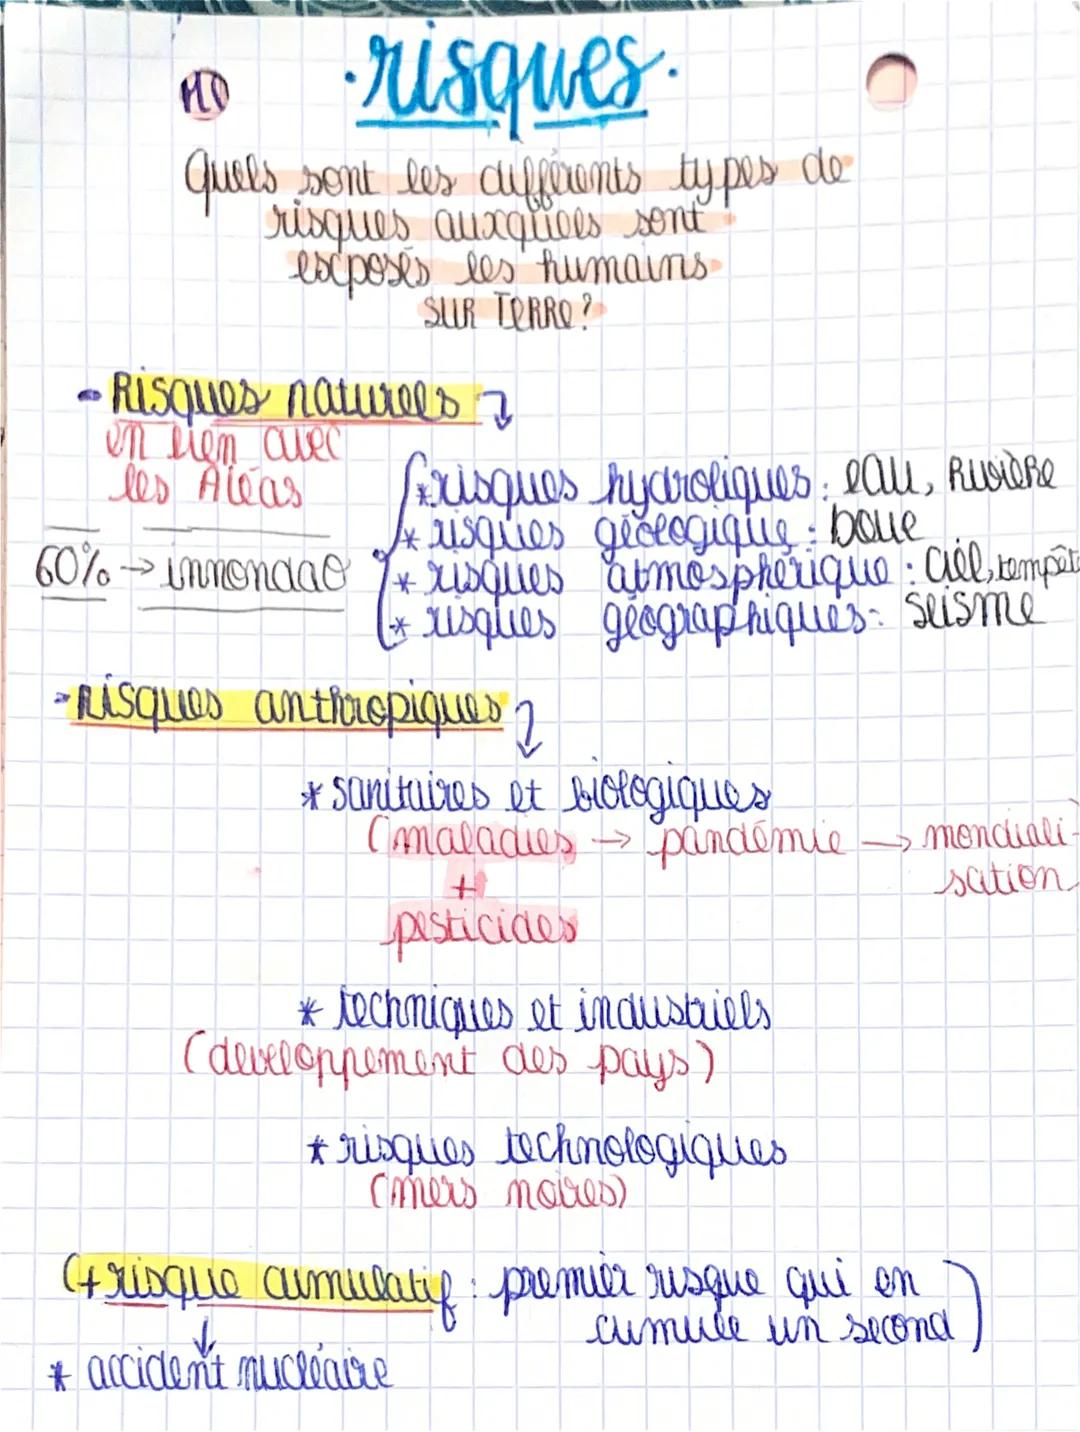 ·risques·
Quels sont les différents types de
risques auxquels sont
exposés les humains
SUR TERRE?
- Risques naturels
en lien avec
les Aléas
* risques hydroliques: eau, Rivière
* risques géologique : boue
60% → innondao
* risques atmosphérique : Ciel, tempêt
* risques géographiques: seisme
- risques anthropiques
* sanitaires et biologiques
(maladies → pandémie → mondiali-
sation
+
pesticides
* techniques et industriels
(developpement des pays)
* risques technologiques
(mers noires)
(+ risque cumulatif : premier risque qui en
cumule un second)
↓
* accident nucléaire